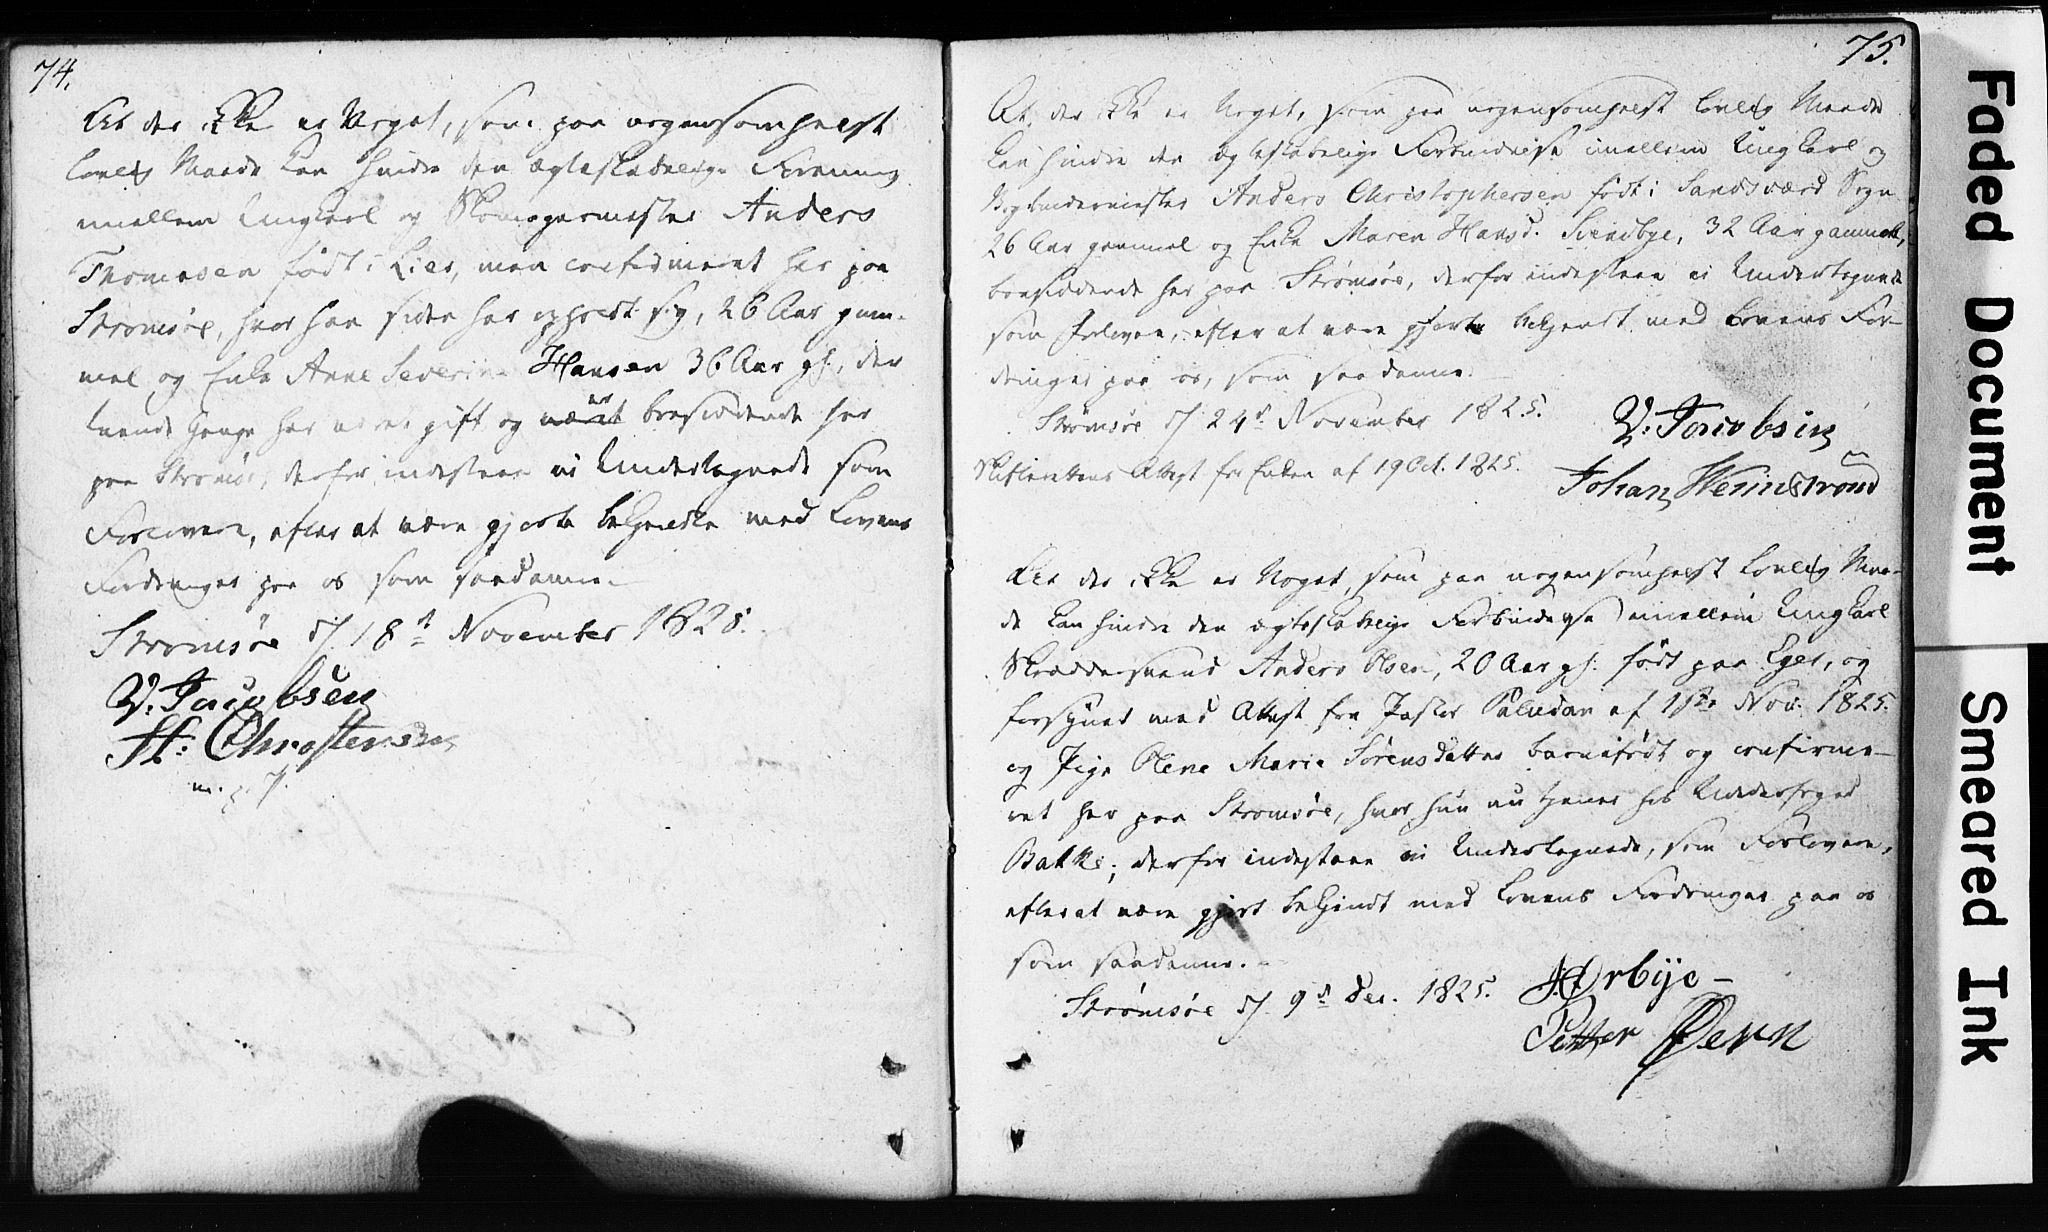 74.
At der ikke er Noget, som paa nogensomhelst
lovlig Maade kan hindre den ægteskabelige Forening
imellem Ungkarl og Skomagermester Anders
Thomesen født i Lier, men confirmeret her paa
Strømsöe, hvor han siden har opholdt sig, 26 Aar gam-
mel og Enke Anne Severine Hansen 36 Aar gl., der
tvende Gange har været gift og er boesiddende her
paa Strømsöe, derfor indestaae vi Undertegnede som
Forlovere, efter at være gjorte bekjendte med Lovens
Fordringer paa os som saadanne.
Strömsöe d/ 18d November 1825.
V. Jacobsen
H: Christensen
m. p. P.
75.
At der ikke er Noget, som paa nogensomhelst lovlig Maade
kan hindre den ægteskabelige Forbindelse imellem Ungkarl og
Bogbindermester Anders Christophersen født i Sandsværd Sogn
26 Aar gammel og Enke Maren Hansd. Svendbye, 32 Aar gammel,
boesiddende her paa Strømsöe, derfor indestaae vi Undertegnede
som Forlovere, efter at være gjorte bekjendt med Lovens For-
dringer paa os, som saadanne.
Strømsöe d/ 24d November 1825.
V. Jacobsen
Skifterettens Attest for Enken af 19 Oct. 1825.
Johan Wennström
At der ikke er Noget, som paa nogensomhelst lovlig Maa-
de kan hindre den ægteskabelige Forbindelse imellem Ungkarl
Skrædersvend Anders Olsen, 20 Aar gl. født paa Eger, og
forsynet med Attest fra Pastor Paludan af 1ste Nov. 1825.
og Pige Olene Marie Sörensdatter barnefödt og confirme-
ret her paa Strømsöe, hvor hun nu tjener hos Underfoged
Bakke; derfor indestaae vi Undertegnede, som Forlovere,
efter at være gjort bekjendt med Lovens Fordringer paa os
som saadanne.
Strømsöe d/ 9d Dec. 1825.
Ørbye
Petter Dern
Faded Document
Smeared Ink